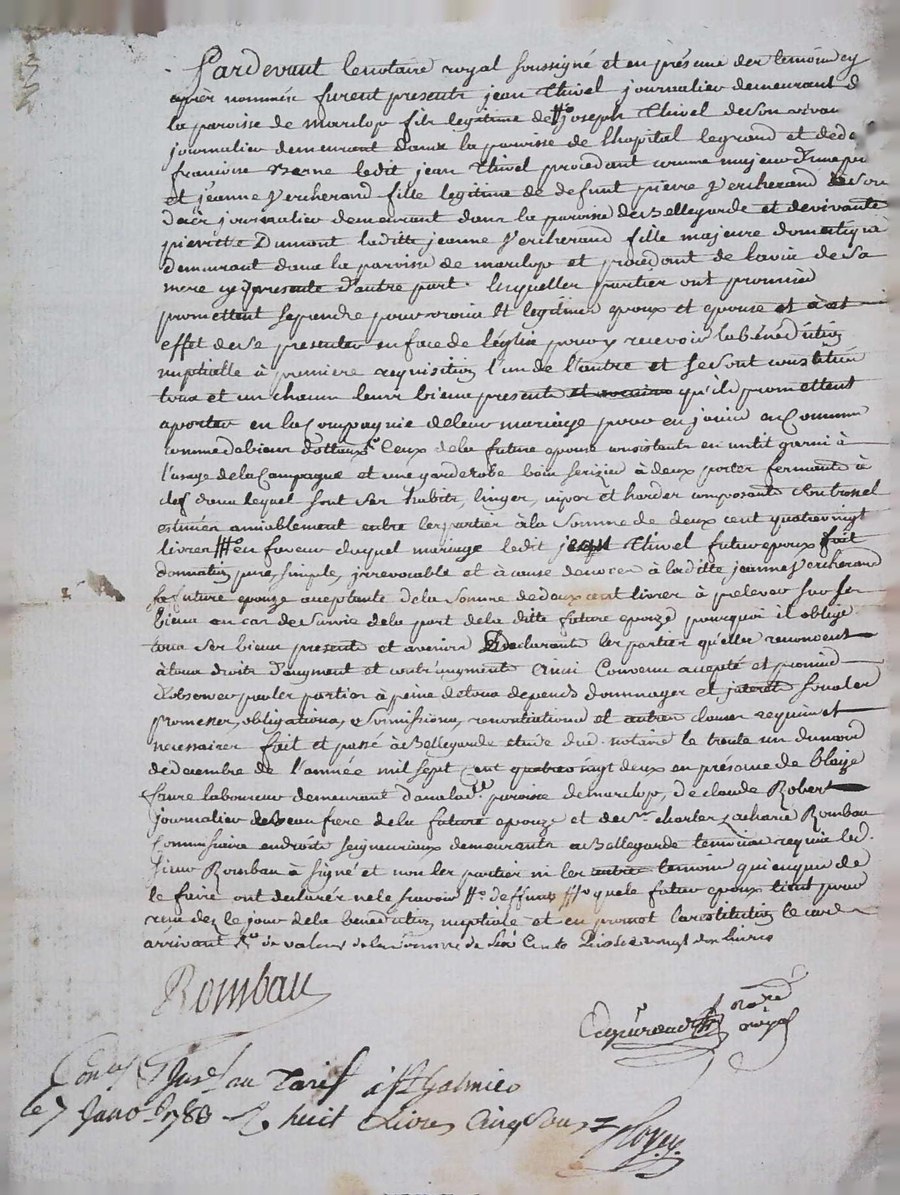 Pardevant le notaire royal soussigné et en présence des temoins cy
après nommés furent presents jean Thivel journalier demeurant
la paroisse de marclop fils legitime de joseph Thivel de son vivan
journalier demeurant dans la paroisse de lhopital legrand et de
francoise Verne ledit jean Thivel procedant comme majeur d'une
et jeanne Vercherand fille legitime de defunt pierre Vercherand
journalier demeurant dans la paroisse de Bellegarde et de vivante
pierrette Dumont laditte jeanne Vercherand fille majeure domestique
demeurant dans la paroisse de marclop et procedant de lavis de sa
mere cy presente d'autre part. lesquelles parties ont promis
promettent se prendre pour vrais et legitimes epoux et epouse et à cet
effet de se presenter en face de l'église pour y recevoir la bénédiction
nuptialle à premiere requisition l'un de l'autre et se sont constitués
tous et un chacun leurs biens presents et avenirs qu'ils promettent
aporter en la Compagnie de leur mariage pour en jouir en Commun
comme de biens dottaux Ceux de la future epouse consistants en un lit garni à
l'usage de la Campagne et une garderobe bois serizier à deux portes fermants à
clef dans lequel sont ses habits, linges, nipes et hardes composants son trossel
estimés amiablement entre les parties à la somme de deux cent quatre vingt
livres en faveur duquel mariage ledit Thivel futur epoux fait
donnation pure, simple, irrevocable et à cause de noces à laditte jeanne Vercherand
sa future epouze acceptante de la somme de deux cent livres à prelever sur ses
biens en cas de survie de la part de la ditte future epouze pourquoi il oblige
tous ses biens presents et avenirs Declarants les parties qu'elles renoncent
à tous droits d'augment et contr'augment Ainsi Convenu accepté et promis
d'observer par les parties à peine de tous depends dommages et interets sous les
promesses, obligations, soumissions, renontiations et autres clauses requises et
necessaires fait et passé à Bellegarde etude dud. notaire le trente un du mois
de decembre de l'année mil sept Cent quatre vingt deux en présence de blaize
faure laboureur demeurant dans lad.te paroisse de marclop, de claude Robert
journalier beau frere de la future epouze et de Sr. charles zacharie Rombau
Commissaire en droits seigneuriaux demeurants a Bellegarde temoins requis led.
sieur Rombau à signé et non les parties ni les autres temoins qui enquis de
le faire ont declarés ne le scavoir que le futur epoux tient pour
recu dez le jour de la benediction nuptiale et en promet la restitution le cas
arrivant de valeur de la somme de
Rombau
no.re
royal
Con.lé au Tarif à St Galmier
le 7 Janv. 1783 huit Livres Cinq Sous